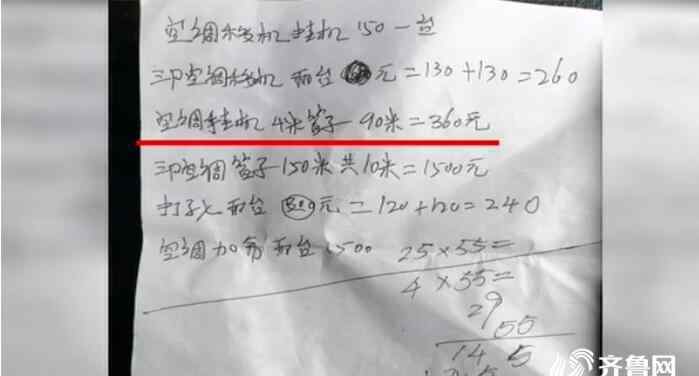 空调移机挂机150一台
三P空调移机 两台 元=130+130=260
空调挂机 4米管子一90米=360元
三P空调管子150米共10米=1500元
打孔 两台 元=120+120=240
空调加 两台 500
25×55=
4×55=
29
55
14 5
齐鲁网